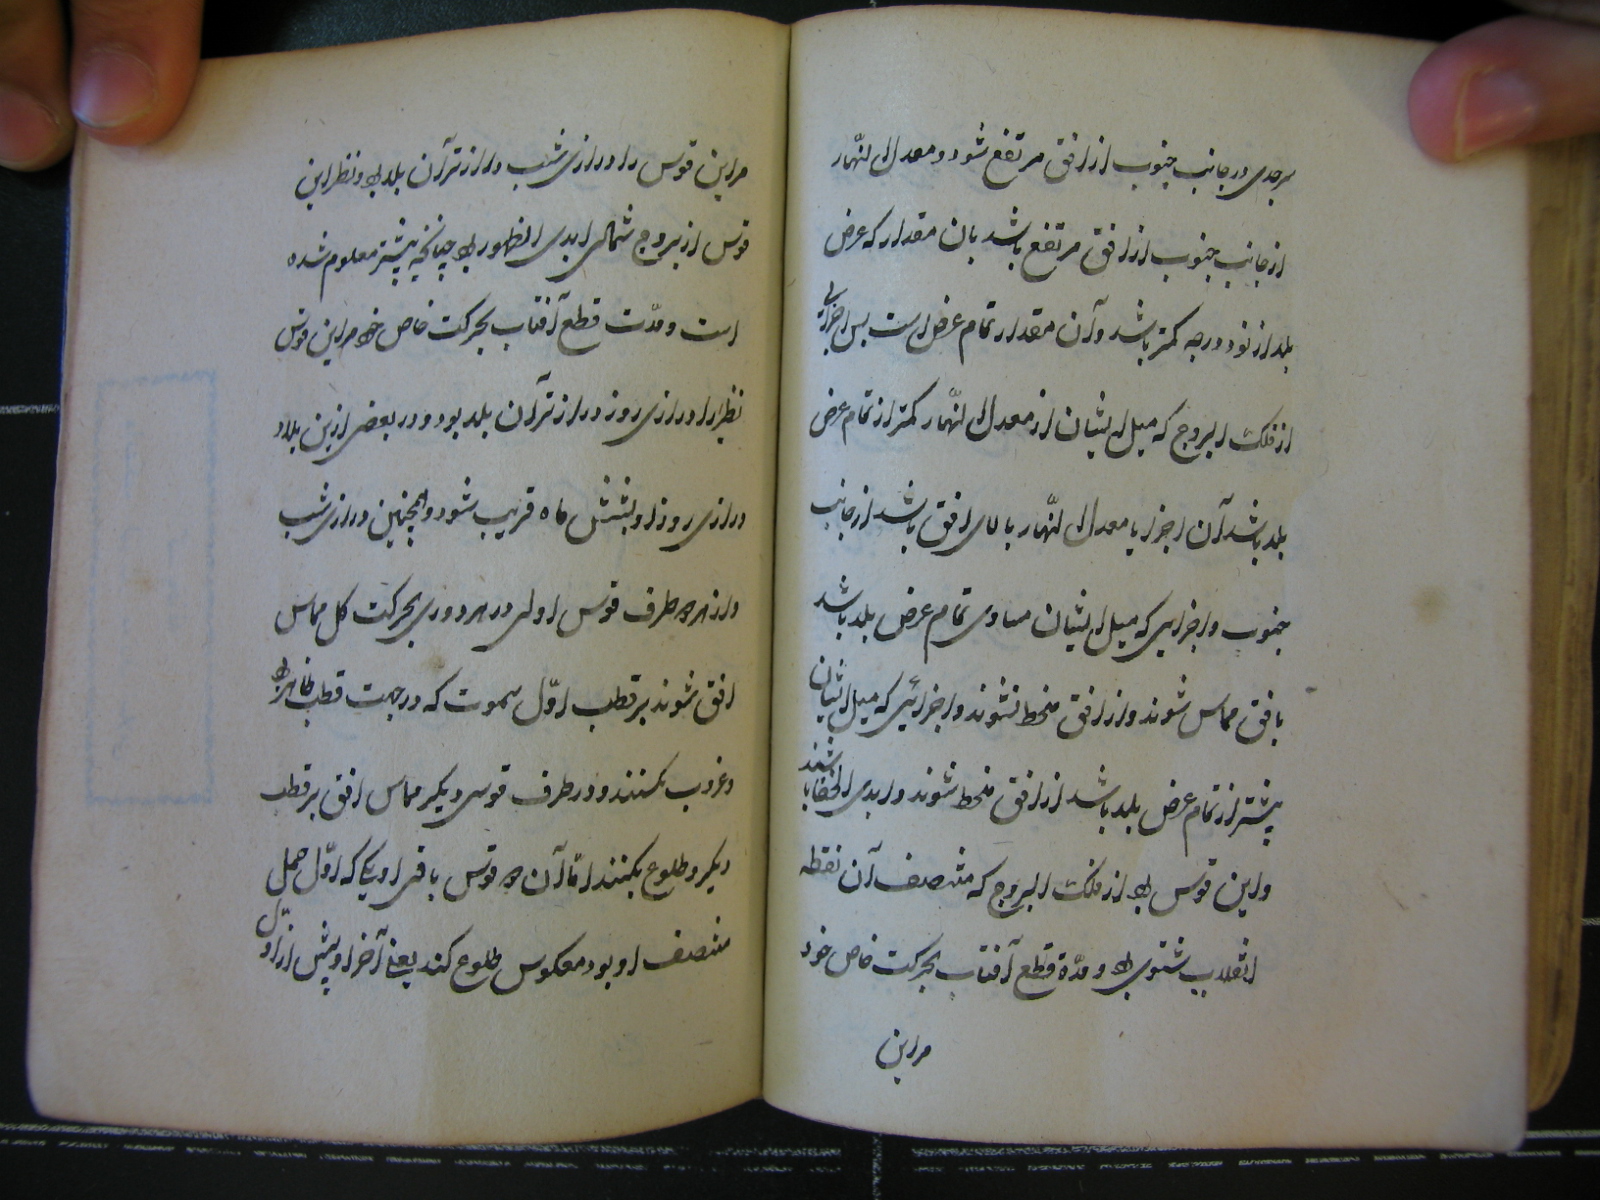 سرجدی در جانب جنوب از افق مرتفع شود و معدل النهّار
از جانب جنوب از افق مرتفع باشد بان مقدار که عرض
بلد از نود درجه کمتر باشد و آن مقدار تمام عرض است پس اجزایی
از فلک البروج که میل ایشان از معدل النهّار کمتر از تمام عرض
بلد باشد آن اجزا با معدل النهّار بالای افق باشد از جانب
جنوب و اجزایی که میل ایشان مساوی تمام عرض بلد باشد
بافق مماس شوند و از افق منحط نشوند و اجزائی که میل ایشان
بیشتر از تمام عرض بلد باشد از افق منحط شوند و ابدی الخفا باشند
و این قوس بود از فلک البروج که منتصف آن نقطه
انقلاب شتوی بود و مدّة قطع آفتاب بحرکت خاص خود
مر این
مر این قوس را درازی شب درازترآن بلد بود و نظر این
قوس از بروج شمالی ابدی الظهور بود چنانچه پیشتر معلوم شده
است و مدّت قطع آفتاب بحرکت خاص خود مر این قوس
نظیر را درازی روز درازترآن بلد بود و در بعضی ازین بلاد
درازی روز او بشش ماه قریب شود و همچنین درازی شب
و از هر دو طرف قوس اولی در هر دوری بحرکت کل مماس
افق شوند بر قطب اوّل سموت که در جهت قطب ظاهر بود
و غروب نکنند و دو طرف قوسی دیکر مماس افق بر قطب
دیکر و طلوع نکنند امّا آن دو قوس باقی او یکی که اوّل حمل
منتصف او بود معکوس طلوع کند یعنی آخر او پیش از اوّل